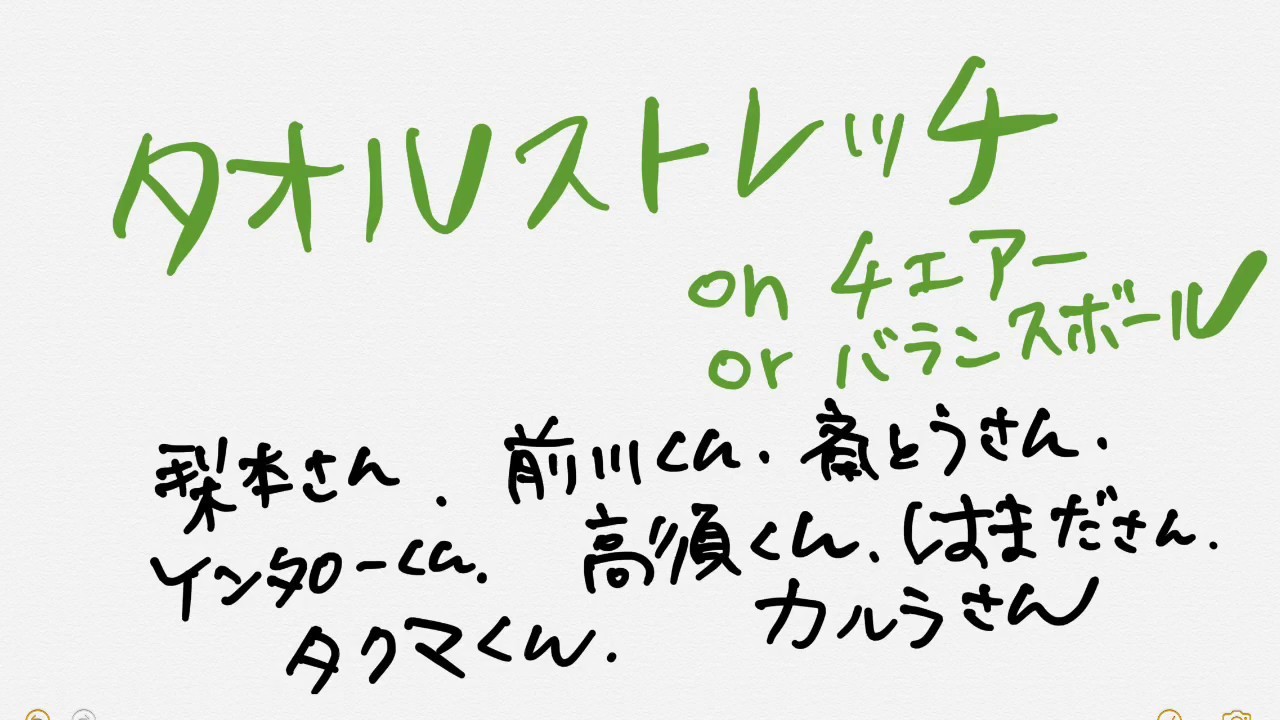 タオルストレッチ
on チェアー
or バランスボール
梨本さん. 前川くん. 斎とうさん.
インタローくん. 高須くん. はまださん.
タクマくん. カルラさん